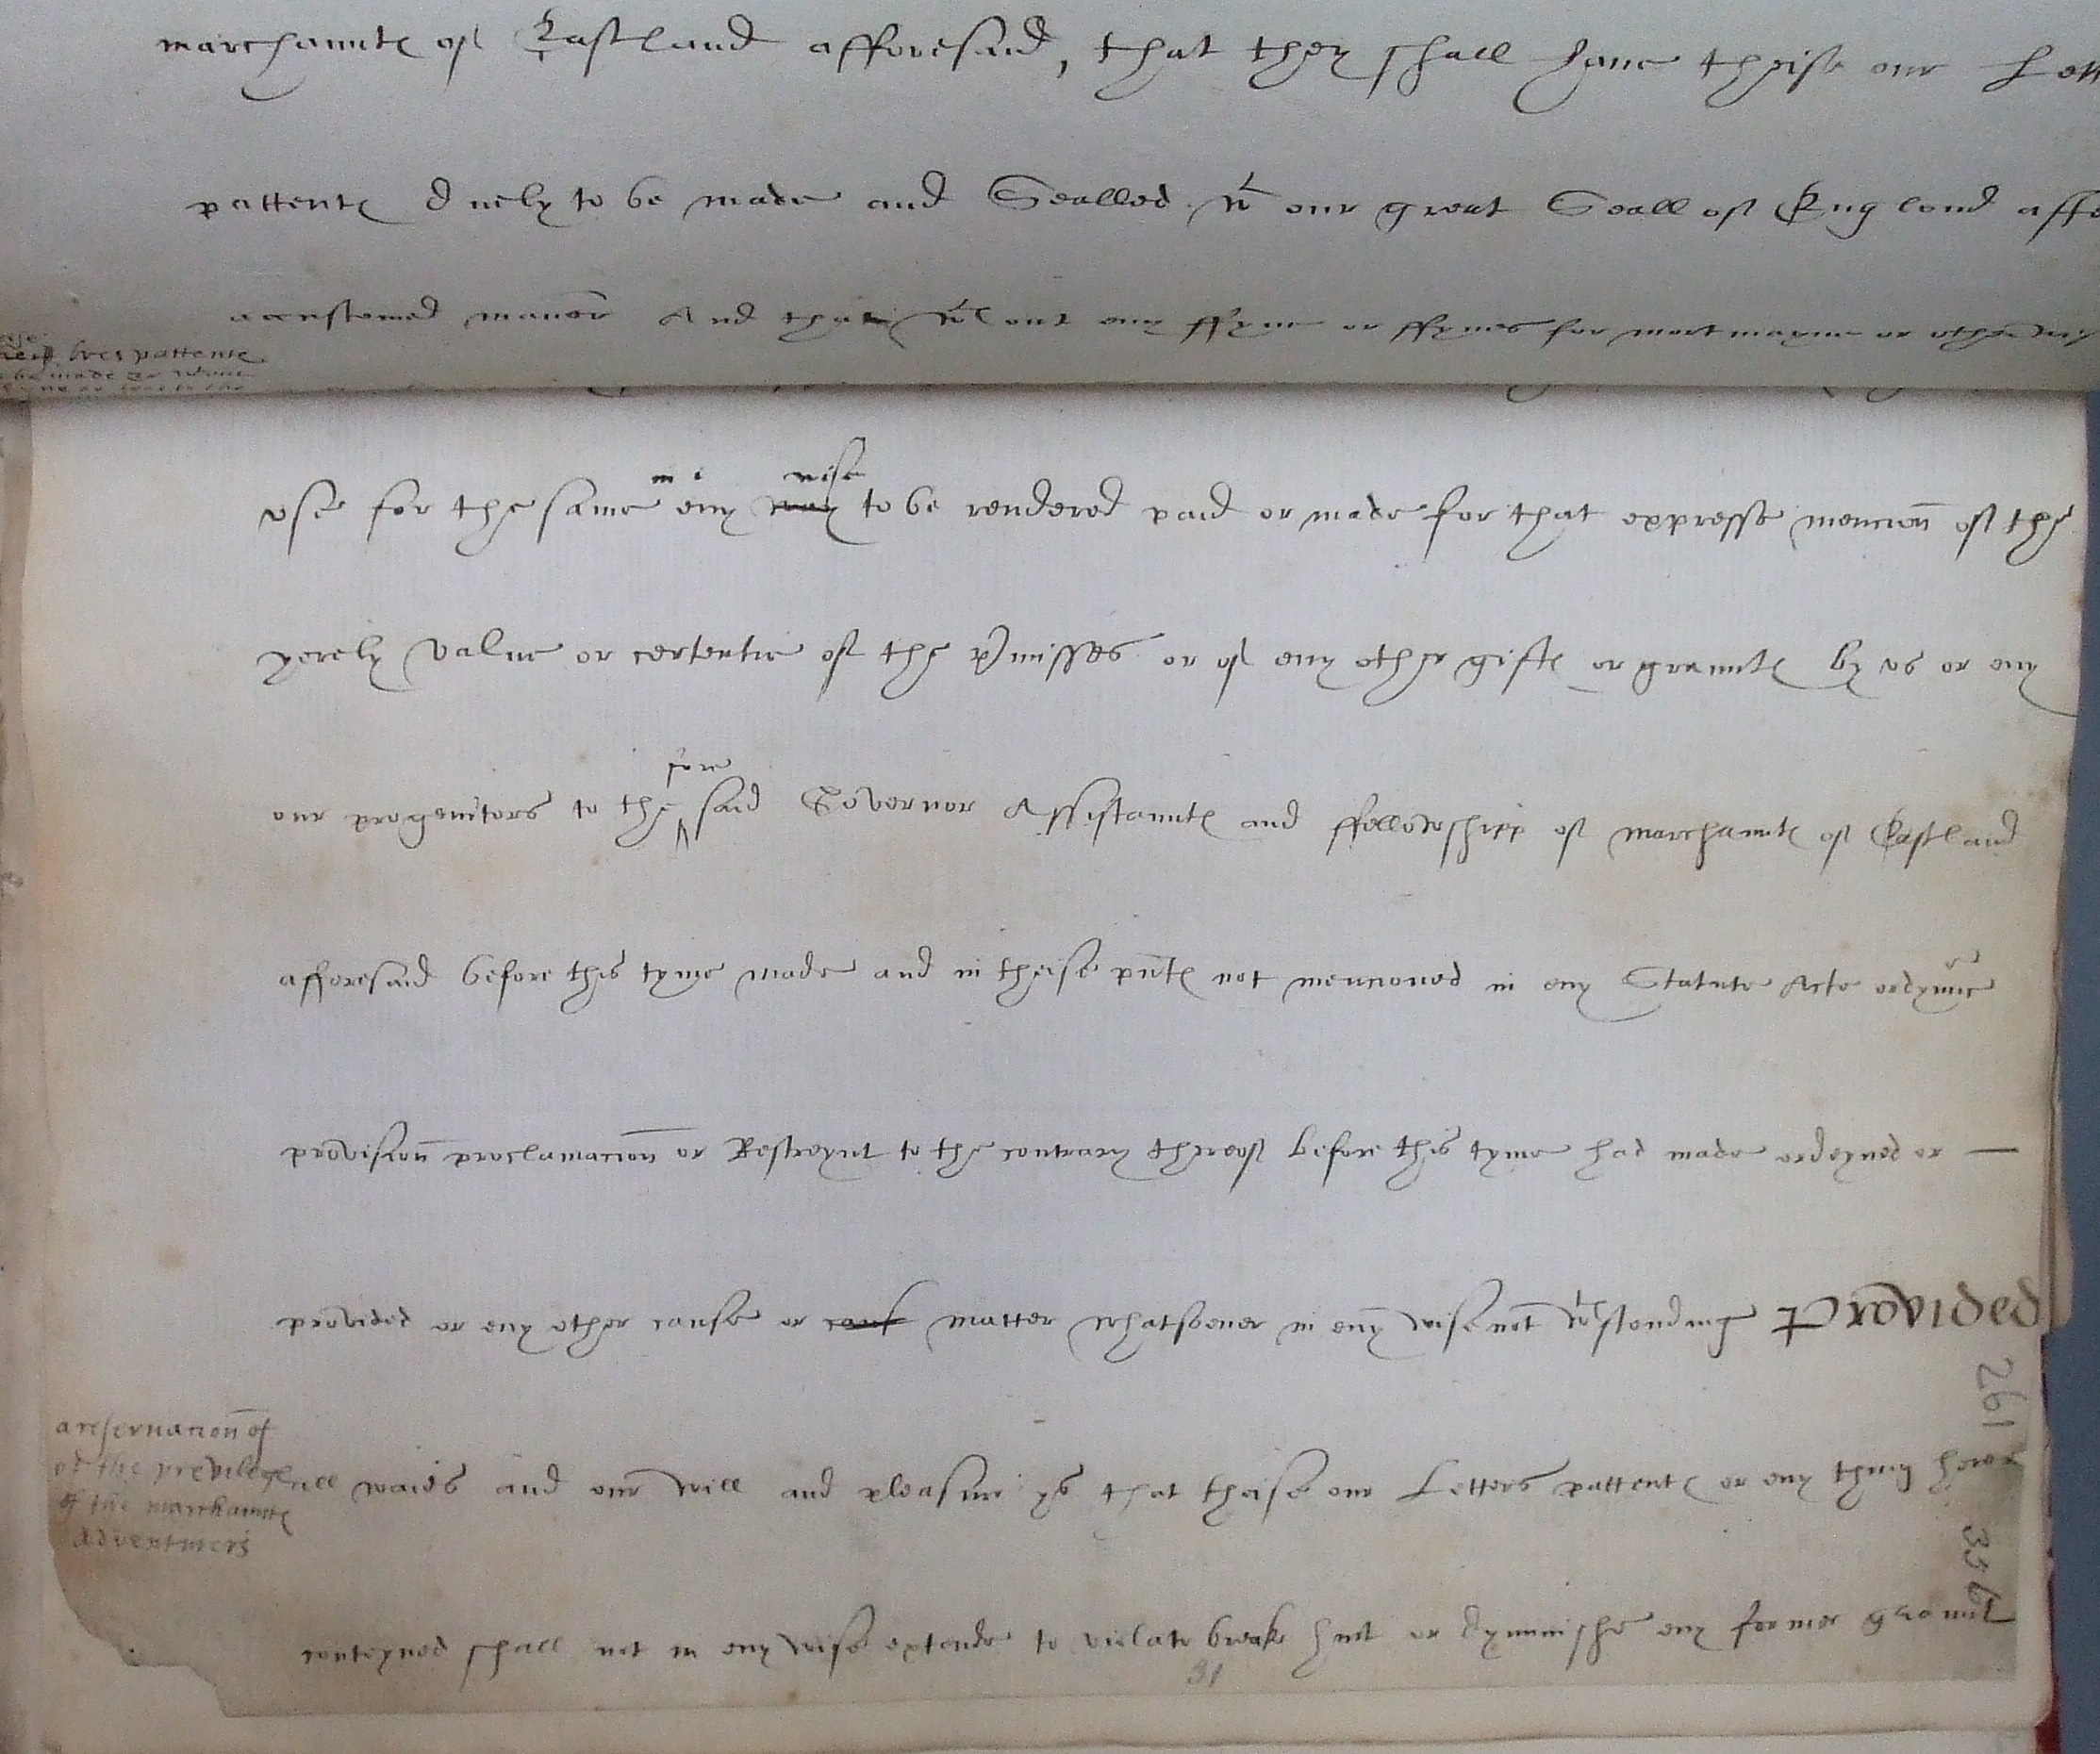 marchaunts of Eastland afforesaid, that they shall haue theise our Lett
pattents duely to be made and Sealled wt our great Seall of England affo
accustomed maner And that wtout eny ffyne or ffynes for mortmayne or otherwy
lres pattente
be made & wtout
vse for the same in eny way wise to be rendered paid or made for that expresse mencion of the
yerely value or certentie of the pmisses or of eny other gifts or graunts by vs or eny
our progenitors to the fore said Governor Assistaunts and ffellowshipp of marchaunts of Eastland
afforesaid before this tyme made and in theise pnts not mencioned in eny Statute Acte ordynnc
provision proclamacion or Restreynt to the contrary thereof before this tyme had made ordeyned or —
provided or eny other cause or caus matter whatsoeuer in eny wise not wtstonding Provided
261
a reseruacion of
of the previleges
of the marchaunts
adventurers
all waies and our will and pleasure ys that theise our Letters pattents or eny thing herin
356
conteyned shall not in eny wise extende to violate breake hurt or dyminishe eny former graunt
31